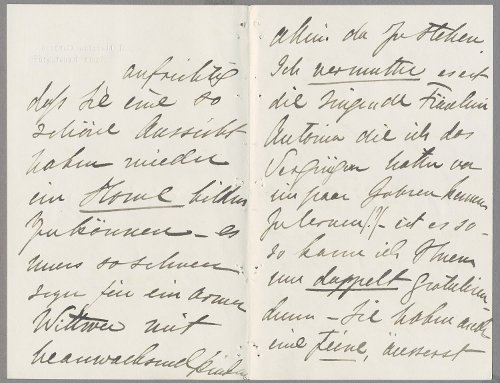 aufrichtig
daß Sie eine so
schöne Aussicht
haben wieder
ein Home bilden
zu können – es
muss so schwer
sein für ein armer
Wittwer mit
heranwachsend Kinder
allein da zu stehen.
Ich vermuthe es ist
die singende Fräulein
Antonia die ich das
Vergnügen hatte vor
ein paar Jahren kennen
zu lernen!! – ist es so –
so kann ich Ihnen
nur doppelt gratuliren
denn – Sie haben auch
eine feine, äusserst